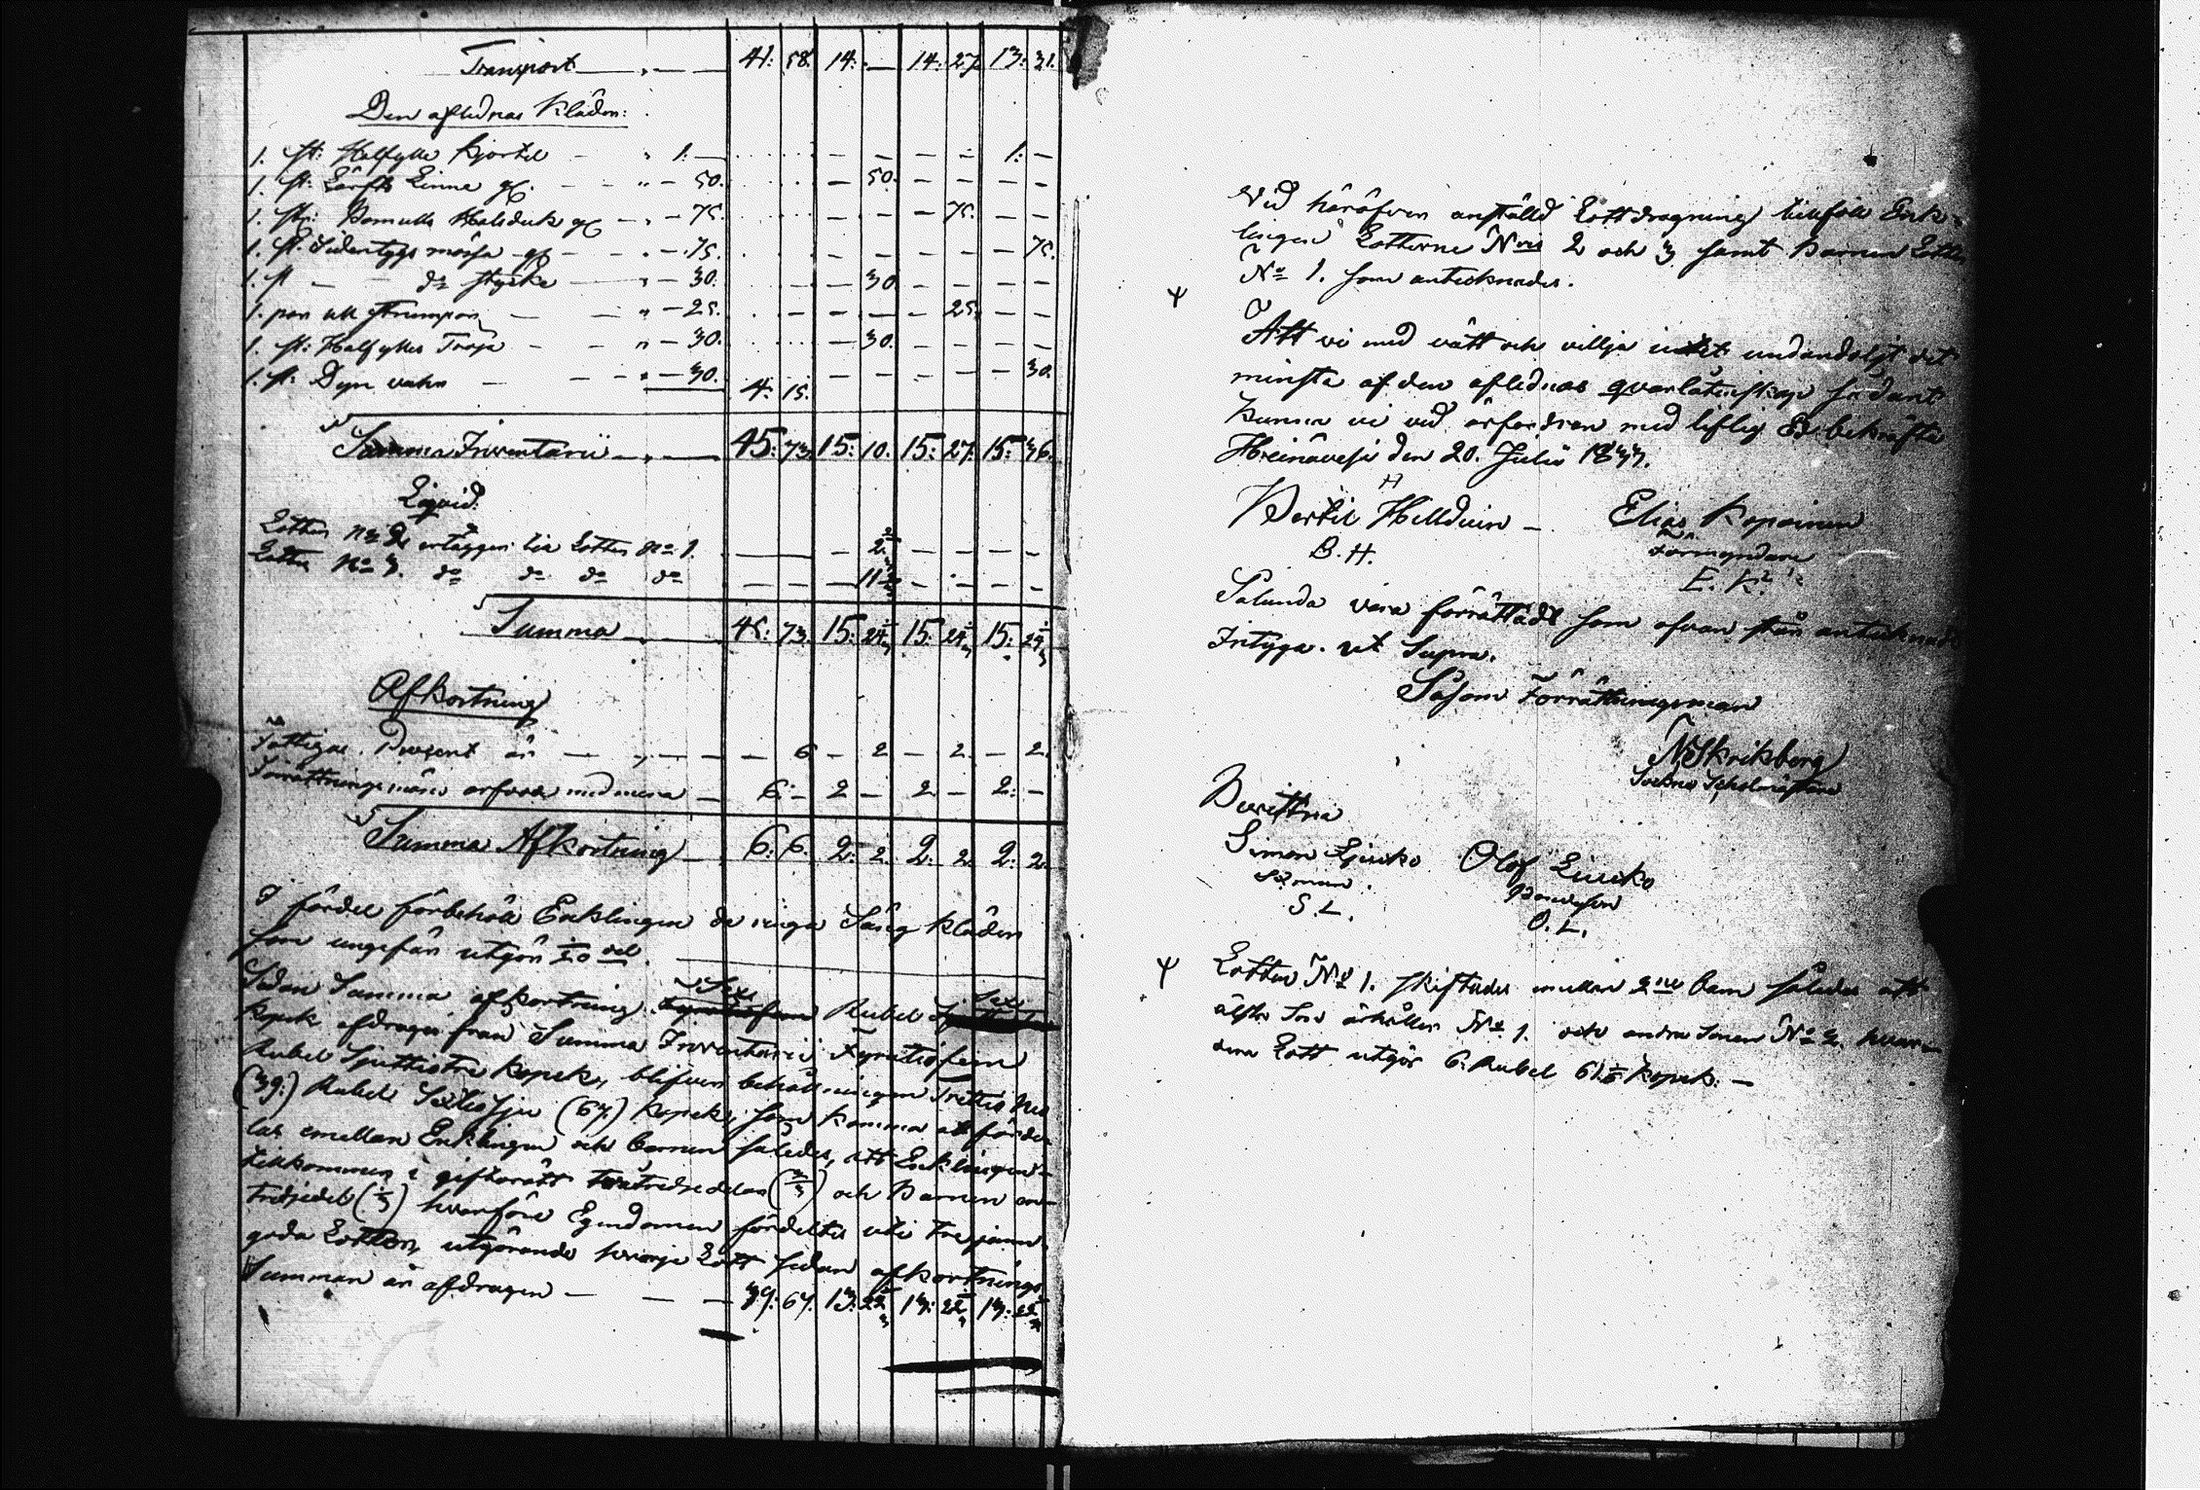 Transport — " — — 41: 58. 14: — 14: 27. 13: 31.
Den aflidnas Kläder:
1. st: Halfylle Kjortel — " 1. — 1: —
1. st: Lärfts Linne gl. — — " — 50. — 50.
1. st: Bomulls Halsduk gl — " — 75. — 75.
1. st. Sidentygs mössa gl — — " — 75. — 75.
1. st — do stycke — " — 30. — 30.
1. par ull strumpor — — " — 25. — 25.
1. st: Halfylles Tröja — — " — 30. — 30.
1. st: Dyn — — " — 30. 4. 15. — 30.
Summa Inventarii — " — 45: 73. 15: 10. 15: 27. 15: 36.
Liqvid.
Lotten No 2 erlägger till Lotten No 1. — 2 2/3
Lotten No 3. do do do do — 11 2/3
Summa — " — 45: 73. 15: 24 1/3 15: 24 1/3 15: 24 1/3
Afkortning
Fattigas Procent är — " — — 6 — 2 — 2. — 2.
Förrättningsmäns arfvode med mera — 6: — 2 — 2 — 2: —
Summa Afkortning — 6: 6. 2: 2. 2: 2. 2: 2.
I fördel förbehåll Enklingen de ringa Säng kläder
som ungefär utgör 1/20 del.
Sedan Summa afkortning Sex Rubel Sex
kopek afdrages från Summa Inventarii Fyratiofem
Rubel Sjuttiotre kopek, blifver behållningen Trettio nio
(39:) Rubel Sextiosju (67.) kopek, som komma att förde-
las emellan Enklingen och barnen således, att Enklingen
tillkommer i giftorätt två tredjedelar (2/3) och Barnen en
tredjedel (1/3) hvarföre Egendomen fördeltes uti tre jämn-
goda Lotter, utgörande hvarje Lott sedan afkortnings
Summan är afdragen — — — 39: 67. 13: 22 1/3 13: 22 1/3 13: 22 1/3
Vid häröfver anställd Lottdragning tillföll Enk-
lingen Lotterne N:ris 2 och 3 samt Barnen Lotten
No 1. som antecknades.
Att vi med vett och vilja intet undandoljt det
minsta af den aflidnas qvarlåtenskap sådant
kunna vi vid ärfordran med liflig Ed bekräfta
Heinävesi den 20. Julii 1877.
Bertil Hellduin — Elias Kopoinen
B. H. Förmyndare
E. K.
Sålunda vara förrättadt som ofvan står antecknadt
Intyga. ut Supra.
Såsom Förrättningsman
N Skriksberg
Sockne Scholmästare
Bevittna
Simon Liucko Olof Liucko
S. L. Bondeson
O. L.
Lotten No 1. skiftades emellan 2ne Barn således att
älste Son ärhåller No 1. och andra Sonen No 2. hvar-
dera Lott utgör 6: Rubel 61 1/6 kopek. —